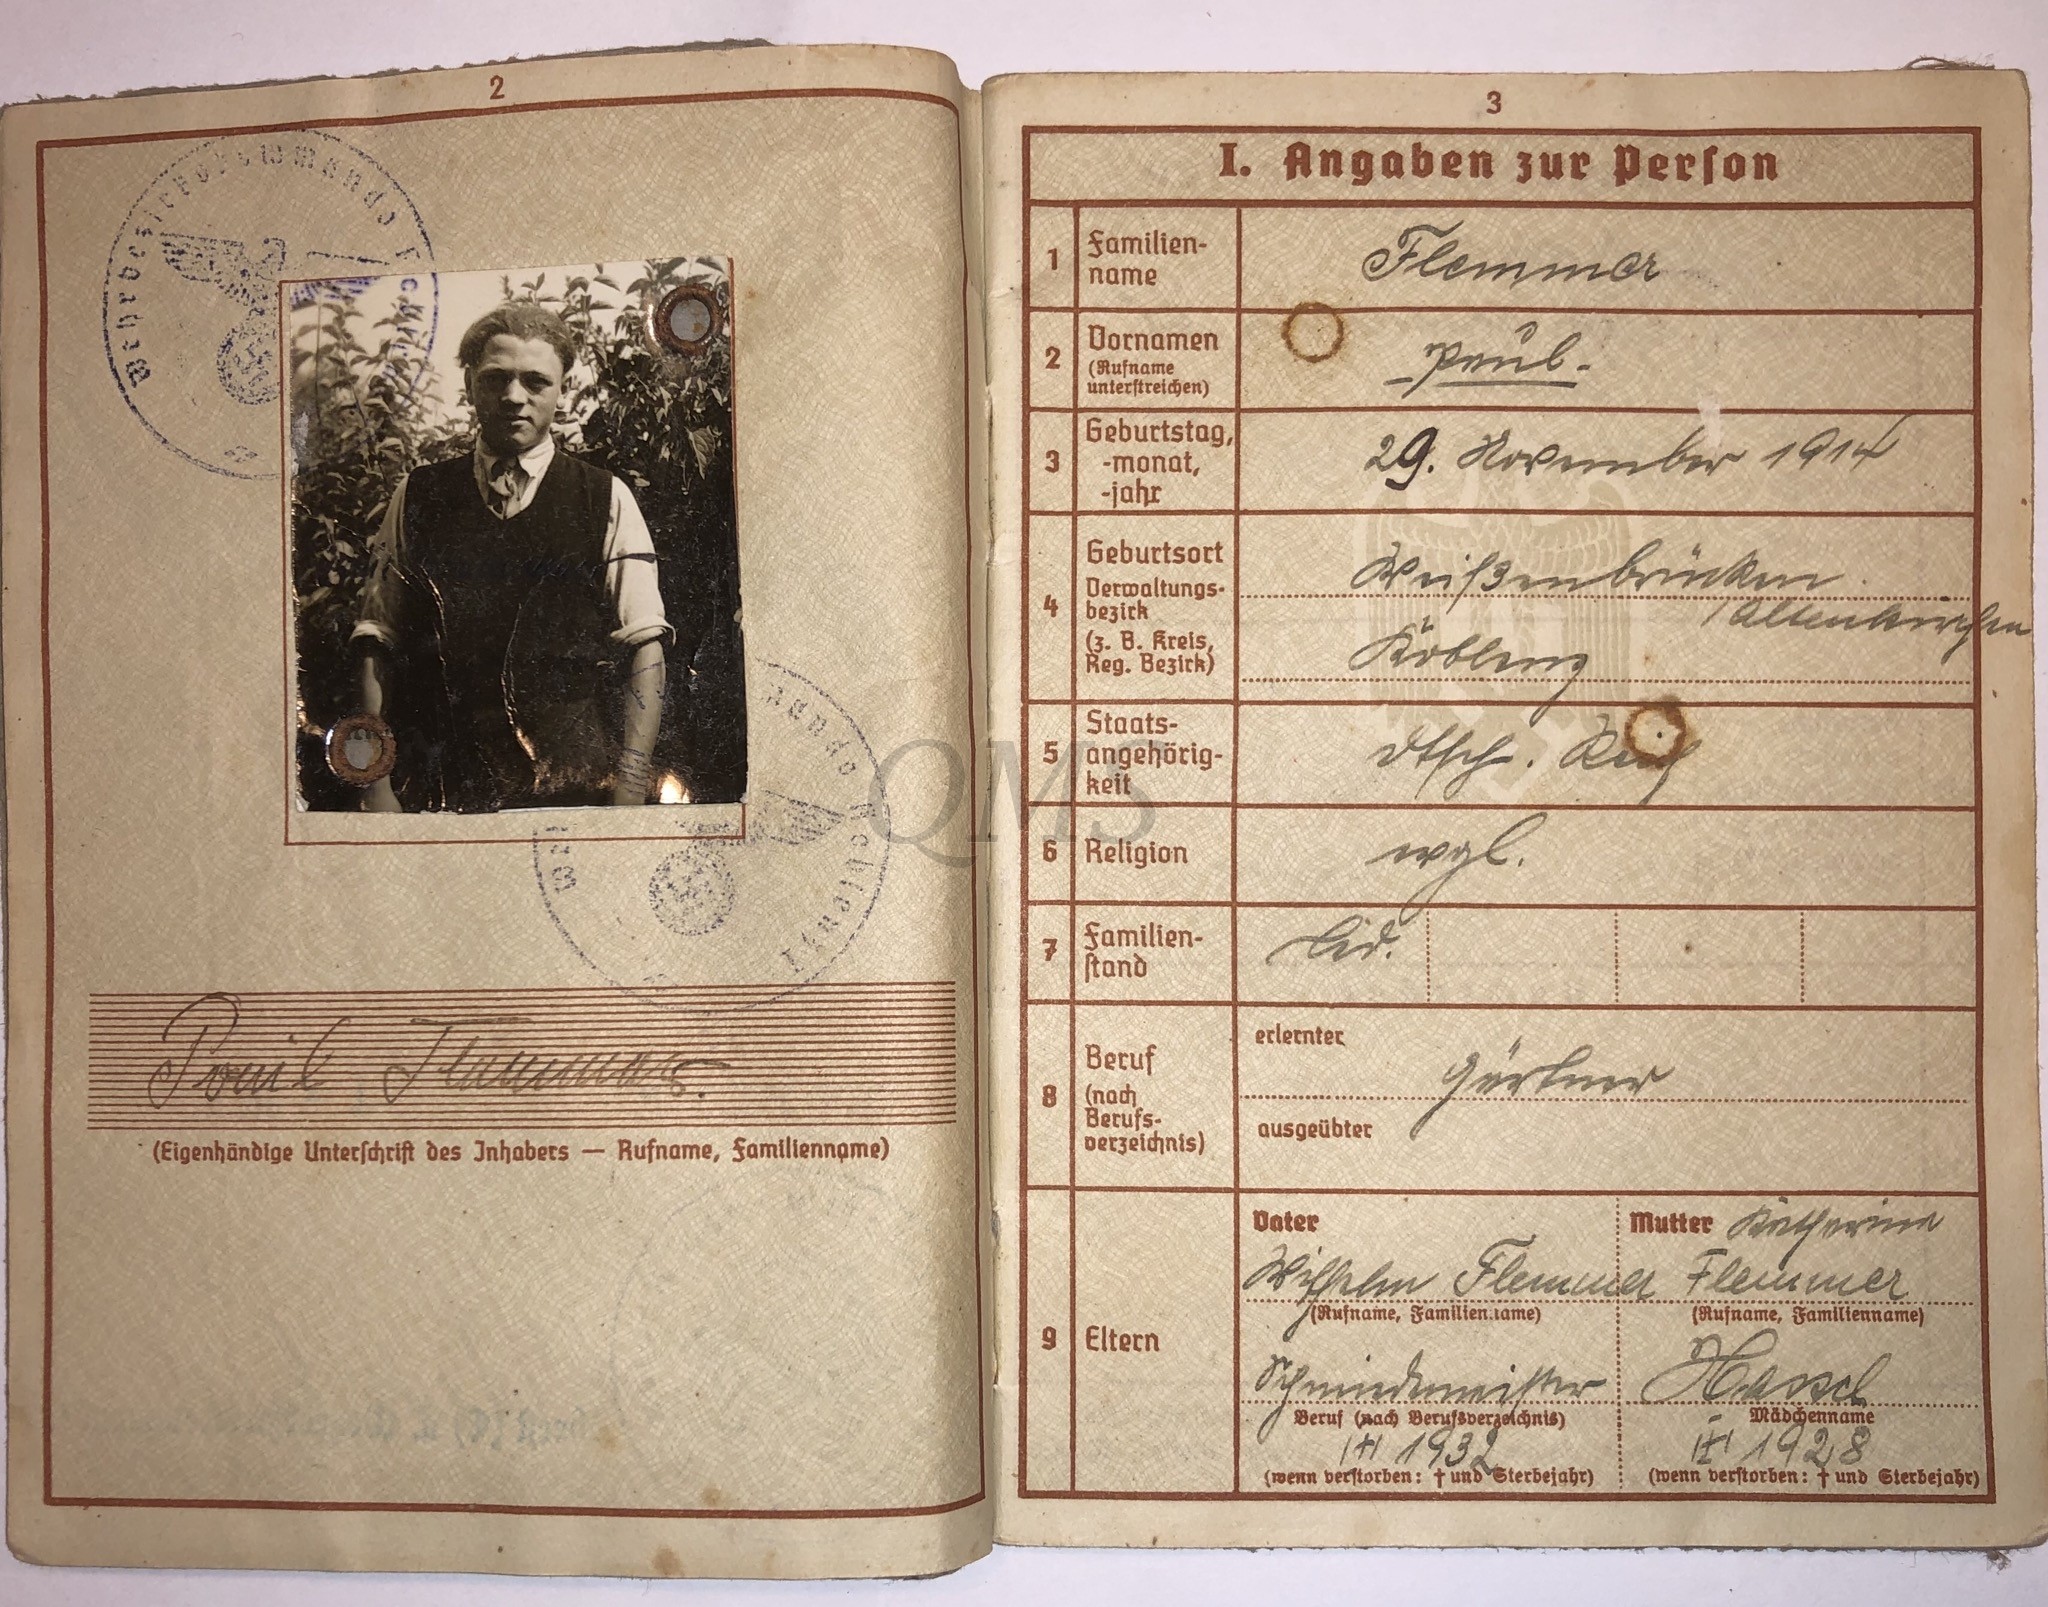 2
Wehrbezirkskommando Koblenz
Wehrbezirkskommando Koblenz I
Paul Flemmer.
(Eigenhändige Unterschrift des Inhabers — Rufname, Familienname)
QMS
3
I. Angaben zur Person
1 Familien-
name
Flemmer
2 Vornamen
(Rufname
unterstreichen)
- Paul. -
3 Geburtstag,
-monat,
-jahr
29. November 1914
4 Geburtsort
Verwaltungs-
bezirk
(z. B. Kreis,
Reg. Bezirk)
Weißenbrücken
/Altenkirchen
Koblenz
5 Staats-
angehörig-
keit
dtsch. Reich
6 Religion
evgl.
7 Familien-
stand
led.
8 Beruf
(nach
Berufs-
verzeichnis)
erlernter
Gärtner
ausgeübter
9 Eltern
Vater
Wilhelm Flemmer
(Rufname, Familienname)
Schmiedemeister
Beruf (nach Berufsverzeichnis)
1932
(wenn verstorben: † und Sterbejahr)
Mutter Katharina
Flemmer
(Rufname, Familienname)
Mädchenname
1928
(wenn verstorben: † und Sterbejahr)